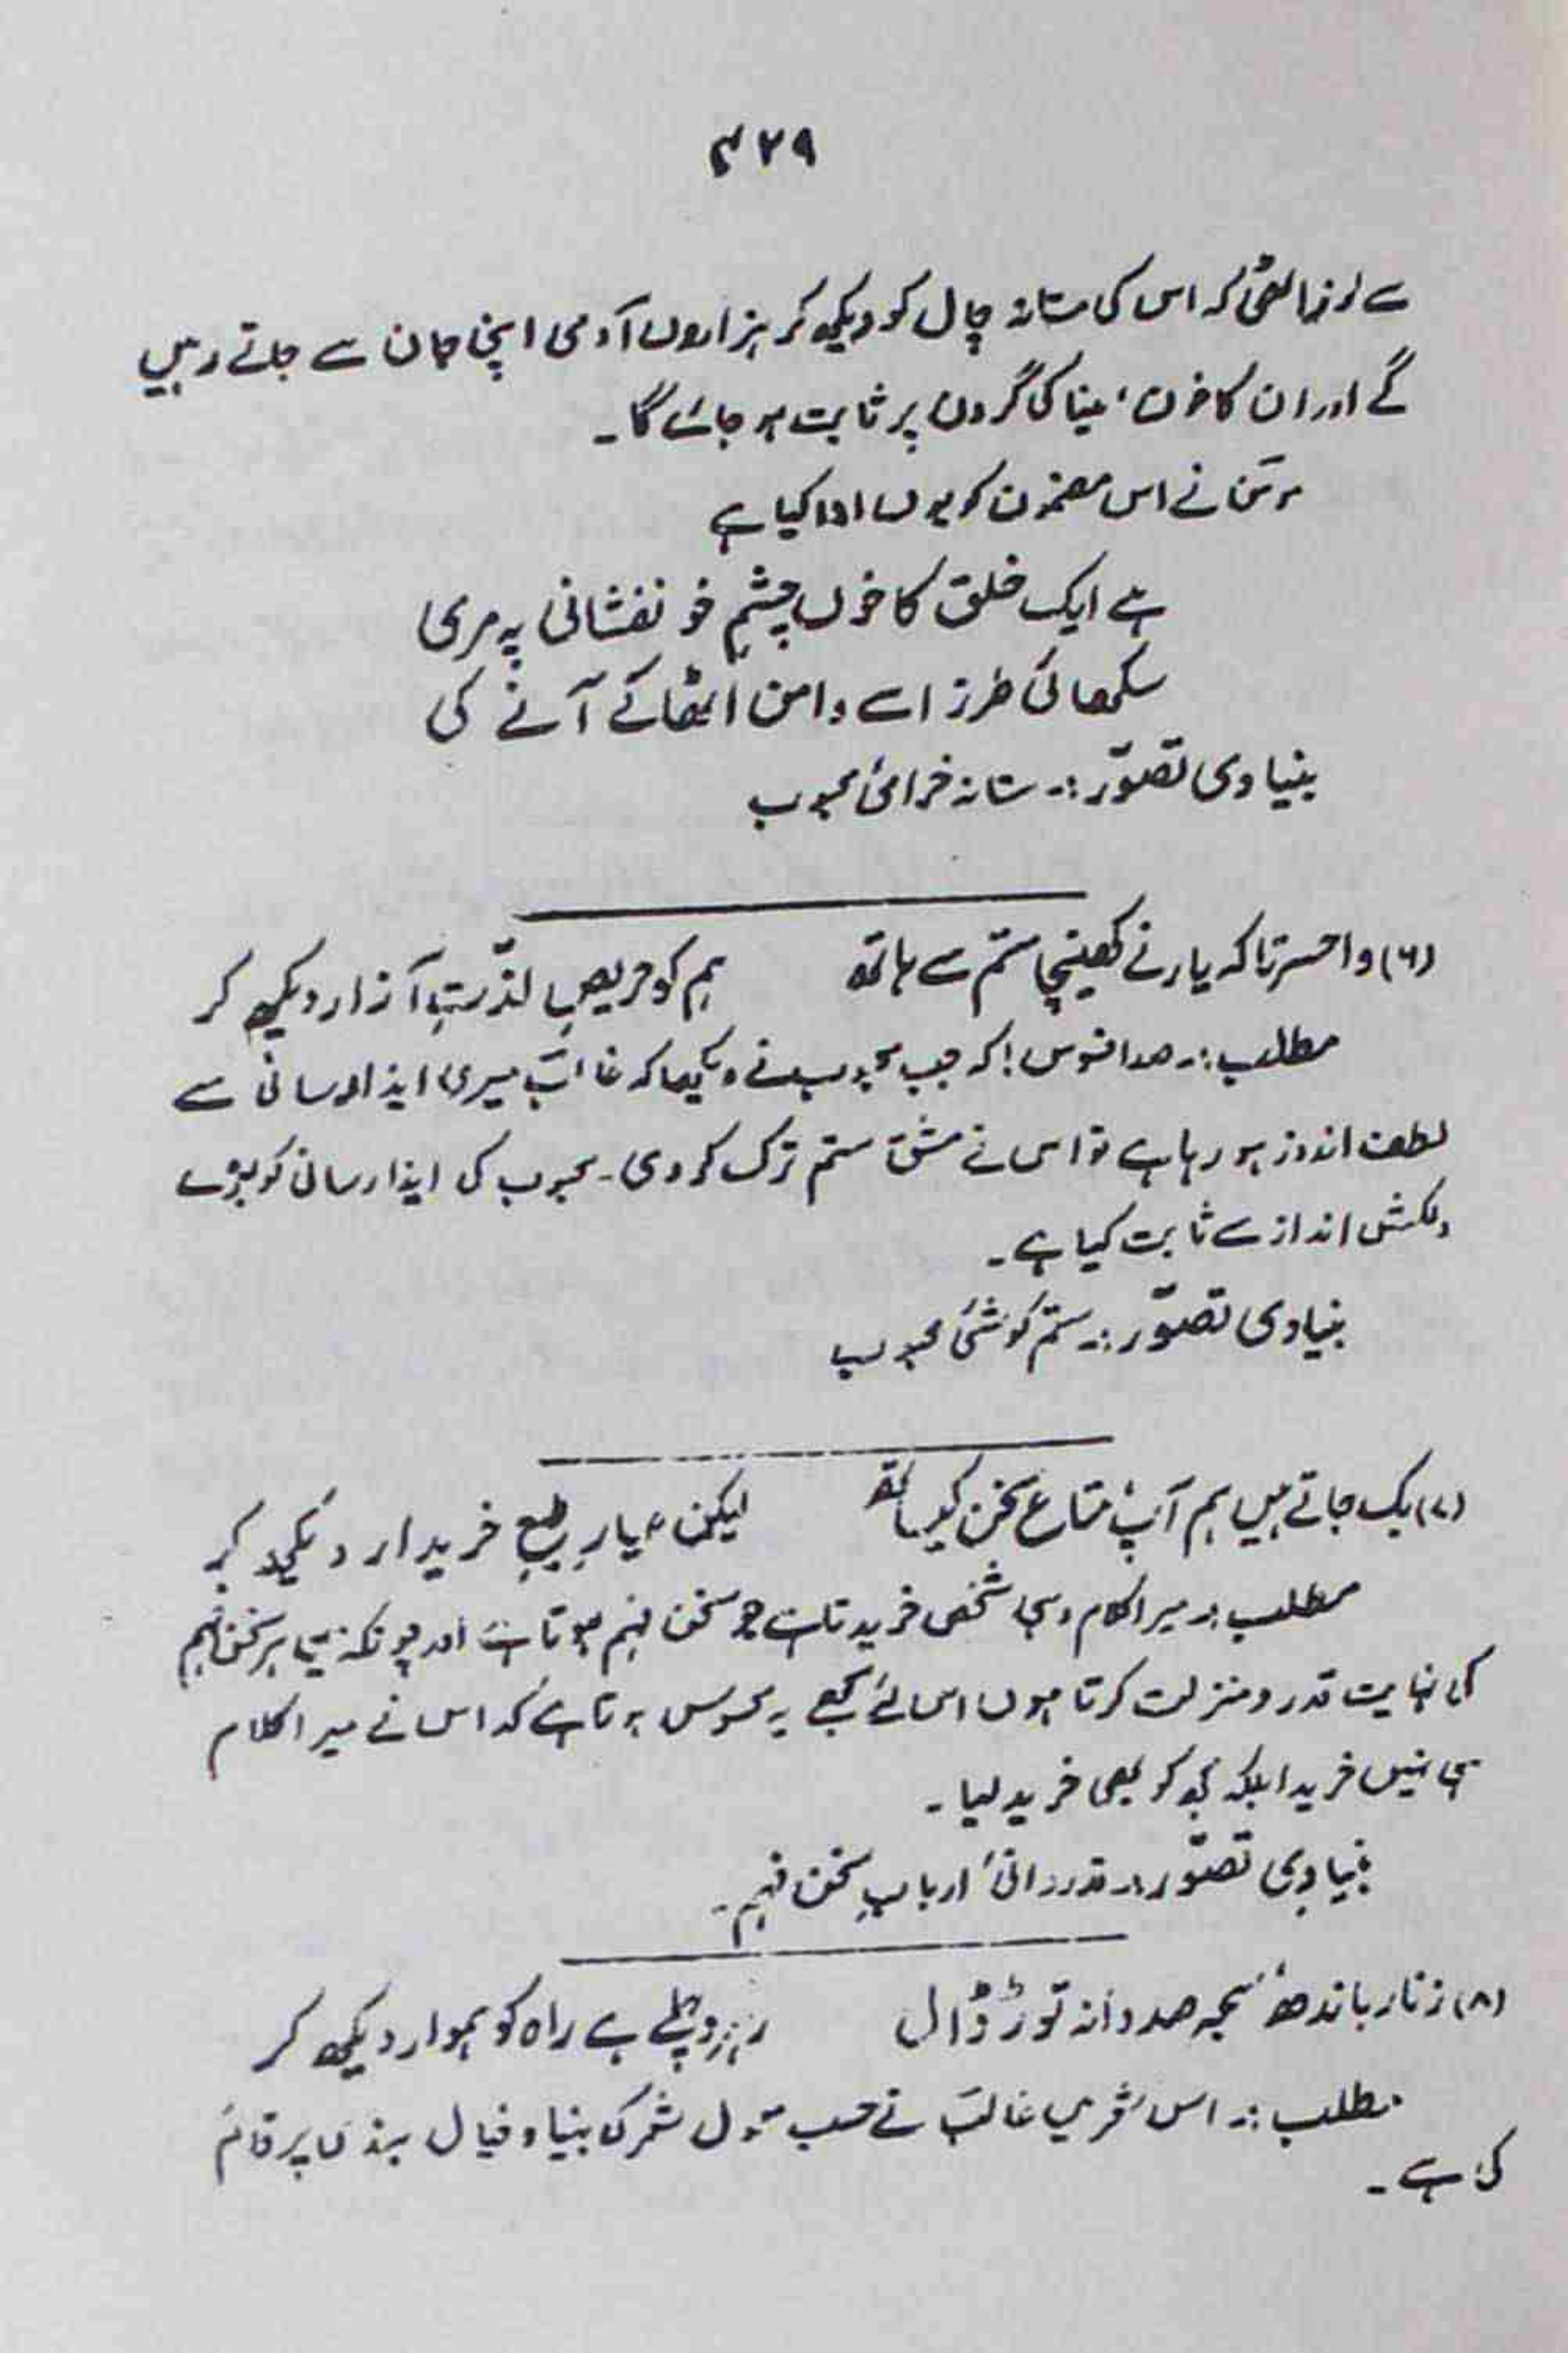 ۴۲۹
سے لرز اٹھی کہ اس کی مستانہ چال کو دیکھ کر ہزاروں آدمی اپنی جان سے جاتے رہیں
گے اور ان کا خون، مینا کی گردن پر ثابت ہو جائے گا۔
مومن نے اس مضمون کو یوں ادا کیا ہے
ہے ایک خلق کا خوں چشمِ خونفشانی پہ مری
سکھائی طرز اسے دامن اٹھا کے آنے کی
بنیادی تصوّر :۔ مستانہ خرامیٔ محبوب
(۶) واحسرتا کہ یار نے کھینچا ستم سے ہاتھ ہم کو حریصِ لذّتِ آزار دیکھ کر
مطلب :۔ صد افسوس! کہ جب محبوب نے دیکھا کہ غالبؔ میری ایذا رسانی سے
لطف اندوز ہو رہا ہے تو اس نے مشق ستم ترک کر دی۔ محبوب کی ایذا رسانی کو بڑے
دلکش انداز سے ثابت کیا ہے۔
بنیادی تصوّر :۔ ستم کوشیٔ محبوب
(۷) بک جاتے ہیں ہم آپ، متاعِ سخن کیساتھ لیکن عیارِ طبعِ خریدار دیکھ کر
مطلب :۔ میرا کلام وہی شخص خریدتا ہے جو سخن فہم ہوتا ہے اور چونکہ میں ہر سخن فہم
کی نہایت قدر و منزلت کرتا ہوں اس لئے مجھے یہ محسوس ہوتا ہے کہ اس نے میرا کلام
ہی نہیں خریدا بلکہ مجھ کو بھی خرید لیا۔
بنیادی تصوّر :۔ قدردانیٔ اربابِ سخن فہم۔
(۸) زنار باندھ، سبحہ صد دانہ توڑ ڈال رہرو چلے ہے راہ کو ہموار دیکھ کر
مطلب :۔ اس شعر میں غالبؔ نے حسب معمول شعر کی بنیاد خیال بندی پر قائم
کی ہے۔